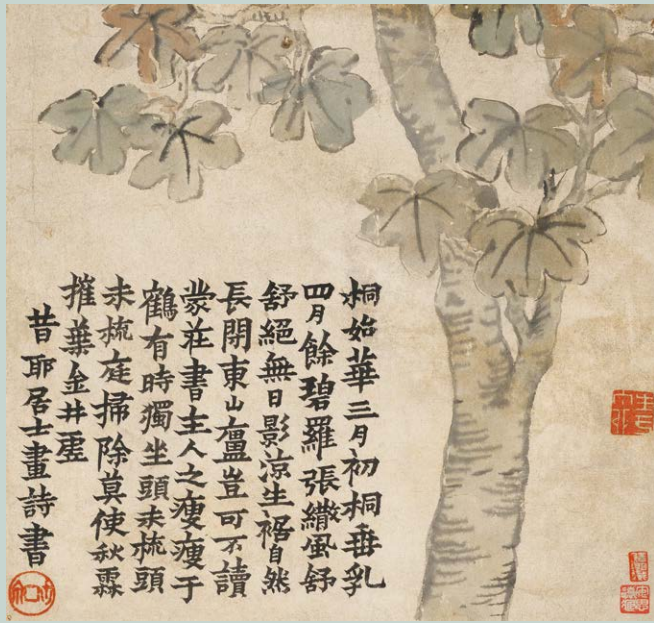 桐始華三月初桐垂乳
四月餘碧羅張繖風舒
舒絕無日影涼生裾自然
長閉東山廬豈可不讀
蒙莊書主人之瘦瘦于
鶴有時獨坐頭未梳頭
未梳庭掃除莫使秋霖
摧葉金井墟
昔耶居士畫詩書